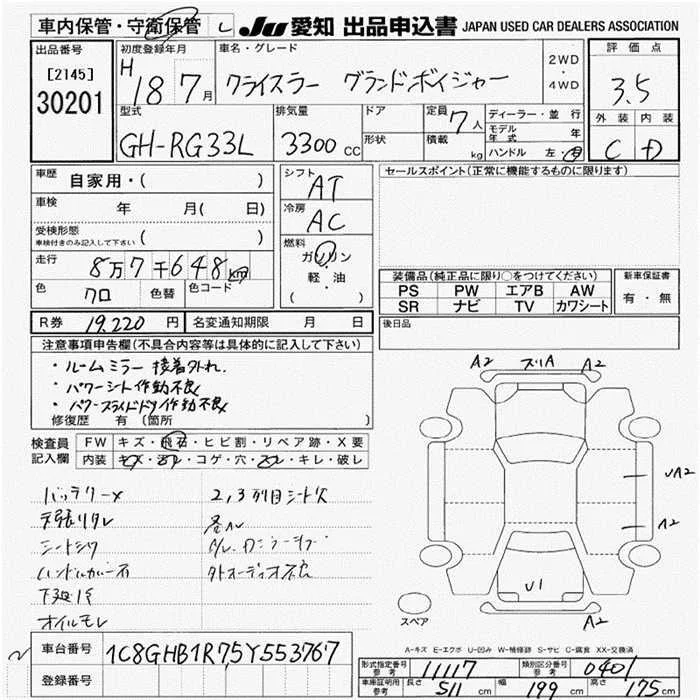 車内保管・守衛保管 し JU 愛知 出品申込書 JAPAN USED CAR DEALERS ASSOCIATION
出品番号 初度登録年月 車名・グレード 2WD・4WD 評価点
[2145]
30201
H 18 7月 クライスラー グランドボイジャー 3.5
型式 排気量 ドア 定員 7人 ディーラー・並行 外装 内装
GH-RG33L 3300 CC 形状 積載 kg モデル年式 年
ハンドル 左・右 C D
車歴 自家用・( ) シフト AT セールスポイント(正常に機能するものに限ります)
車検 年 月( 日) 冷房 AC
受検形態 車検付きのみ記入して下さい ( ) 燃料 ガソリン
軽・油
( )
走行 8万7千648km
装備品(純正品に限り○をつけてください) 新車保証書
PS PW エアB AW 有・無
SR ナビ TV カワシート
色 クロ 色替 色コード
R券 19,220円 名変通知期限 月 日 後日品
注意事項申告欄(不具合内容等は具体的に記入して下さい)
・ルームミラー 接着外れ.
・パワーシート作動不良
・パワースライドドア作動不良
修復歴 有 (箇所 )
検査員記入欄 FW キズ・飛石・ヒビ割・リペア跡・X要
内装 キズ・汚レ・コゲ・穴・スレ・キレ・破レ
A2 ズリA A2
UA2
A2
U1
A2
バッテリー× 2,3列目シート欠
天張りタレ
ハンドルカバースレ
下廻りキズ
オイルモレ
スペア
A-キズ E-エクボ U-凹み W-補修跡 S-サビ C-腐食 XX-交換済
車台番号 1C8GHB1R75Y553767
登録番号
形式指定番号 参考 11117 類別区分番号 参考 0401
車庫証明用 参考 長さ 511 cm 幅 199 cm 高さ 175 cm